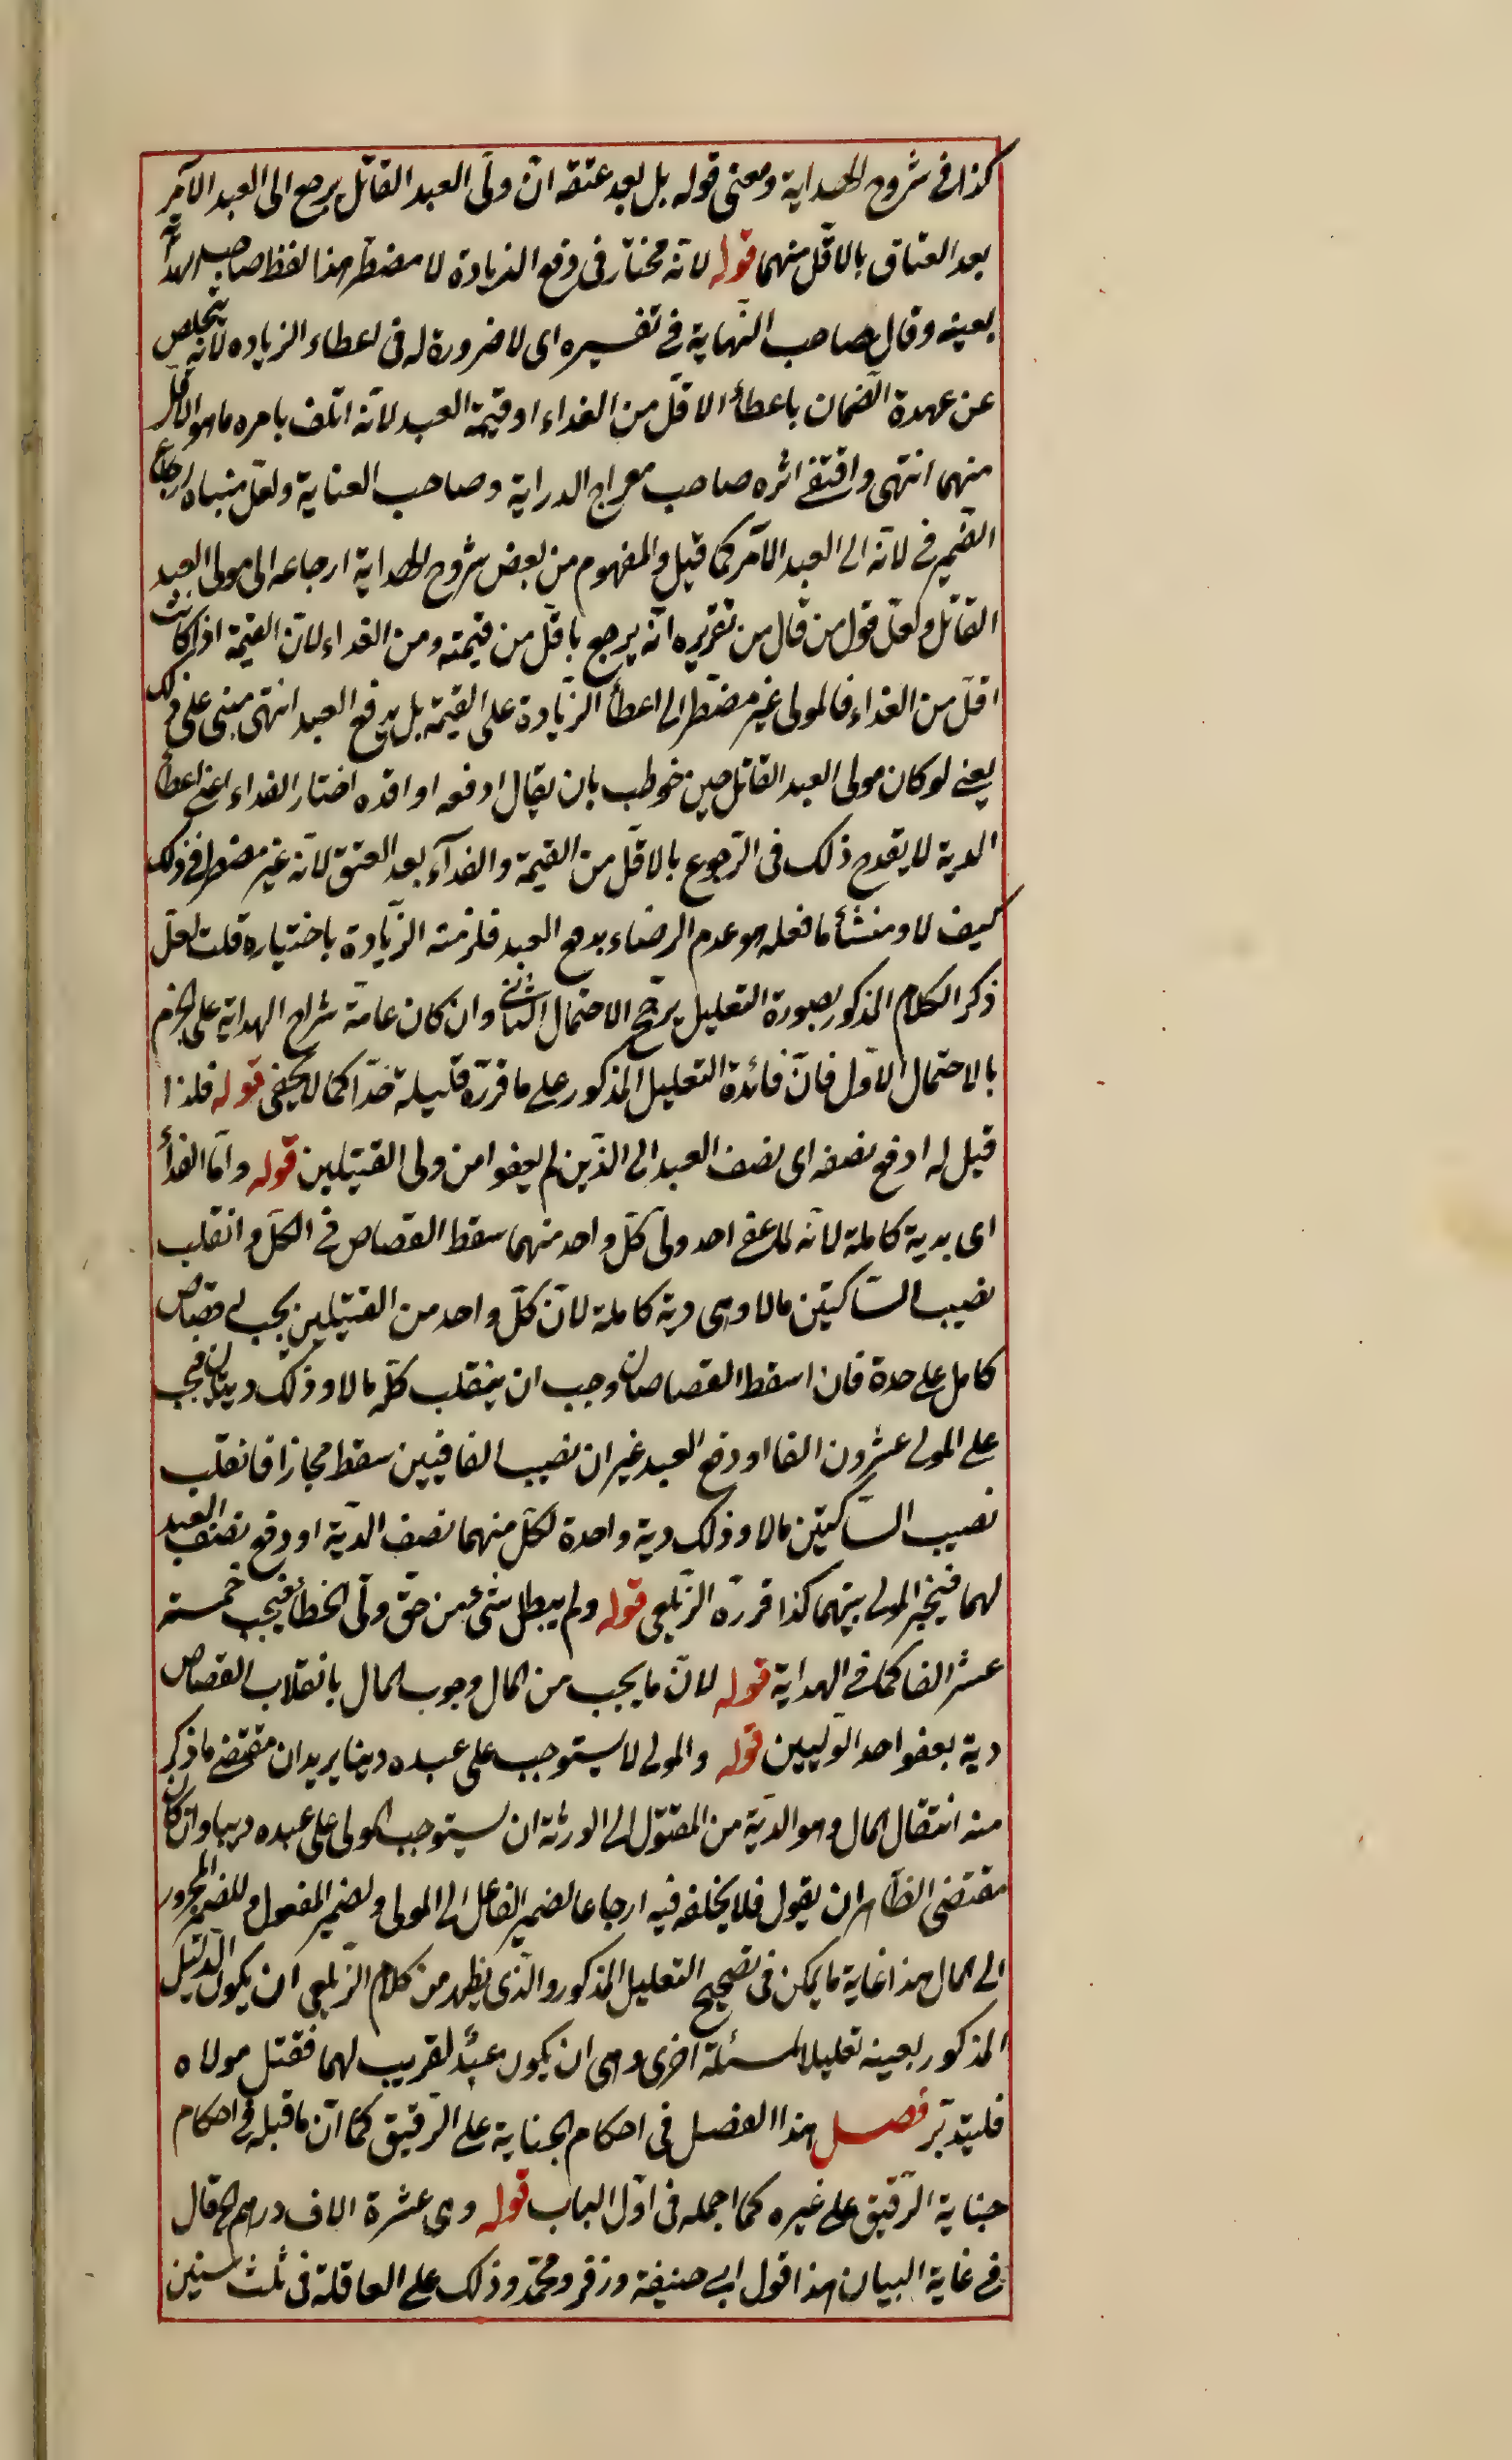 كذا فى شروح الهداية ومعنى قوله بل بعد عتقه انّ ولّى العبد القاتل يرجع الى العبد الآمر
بعد العتاق بالاقلّ منهما قوله لانّه مختار فى دفع الزيادة لا مضطر هذا لفظ صاحب الهداية
بعينه وقال صاحب النّهاية فى تفسيره اى لا ضرورة له فى اعطاء الزياده لانّه يتخلص
عن عهدة الضمان باعطاء الاقلّ من الفداء او قيمة العبد لانّه اتلف بامره ما هو الاقلّ
منهما انتهى واقتفى اثره صاحب معراج الدراية وصاحب العناية ولعلّ مبناه ارجاع
الضّمير فى لانّه الى العبد الآمر كما قيل والمفهوم من بعض شروح الهداية ارجاعه الى مولى العبد
القاتل ولعلّ قول من قال من تقريره انّه يرجع باقلّ من قيمته ومن الفداء لانّ القيمة اذا كانت
اقلّ من الفداء فالمولى غير مضطّر الى اعطاء الزّيادة على القيمة بل يدفع العبد انتهى مبنى على ذلك
يعنى لو كان مولى العبد القاتل حين خوطب بان يقال ادفعه او افده اختار الفداء اعنى اعطاء
الدية لا يقدح ذلك فى الرّجوع بالاقلّ من القيمة والفدآء بعد العتق لانّه غير مضطر فى ذلك
كيف لا ومنشأ ما فعله هو عدم الرضاء بدفع العبد فلزمته الزّيادة باختياره قلت لعلّ
ذكر الكلام المذكور بصورة التعليل يرجّح الاحتمال الثانى وان كان عامّة شراح الهداية على الجزم
بالاحتمال الاول فانّ فائدة التعليل المذكور على ما قررّه قليلة جدّا كما لا يخفى قوله فلذا
قيل له ادفع نصفه اى نصف العبد الى الذّين لم يعفوا من ولى القتيلين قوله وامّا الفداء
اى بدية كاملة لانّه لما عفى احد ولّى كلّ واحد منهما سقط القصاص فى الكلّ وانقلب
نصيب السّاكتين مالا وهى دية كاملة لانّ كلّ واحد من القتيلين يجب له قصاص
كامل على حدة فان اسقط القصاصان وجب ان ينقلب كلّه مالا وذلك ديتان فيجب
على المولى عشرون الفا او دفع العبد غير ان نصيب العافيين سقط مجازا فانقلب
نصيب السّاكتين مالا وذلك دية واحدة لكلّ منهما نصف الدّية او دفع نصف العبد
لهما فيخيّر المولى بينهما كذا قررّه الزّيلعى قوله ولم يبطل شىء من حقّ ولّى الخطاء فيجب خمسة
عشر الفا كما فى الهداية قوله لانّ ما يجب من المال وجوب المال بانقلاب القصاص
دية بعفو احد الوليين قوله والمولى لا يستوجب على عبده دينا يريد ان مقتضى ما ذكر
منه انتقال المال وهو الدّية من المقتول الى الورثة ان يستوجب المولى على عبده دينا وان كان
مقتضى الظاهر ان يقول فلا يخلفه فيه ارجاعا لضمير الفاعل الى المولى ولضمير المفعول وللضمير المجرور
الى المال هذا غاية ما يمكن فى تصحيح التعليل المذكور والّذى يظهر من كلام الزّيلعى ان يكون الدّليل
المذكور بعينه تعليلا لمسئلة اخرى وهى ان يكون عبدٌ لقريب لهما فقتل مولاه
فليتدبّر فصل هذا الفصل فى احكام الجناية على الرّقيق كما انّ ما قبله فى احكام
جناية الرّقيق على غيره كما اجمله فى اوّل الباب قوله وهى عشرة الاف درهم الخ قال
فى غاية البيان هذا قول ابى حنيفة وزفر ومحمّد وذلك على العاقلة فى ثلث سنين